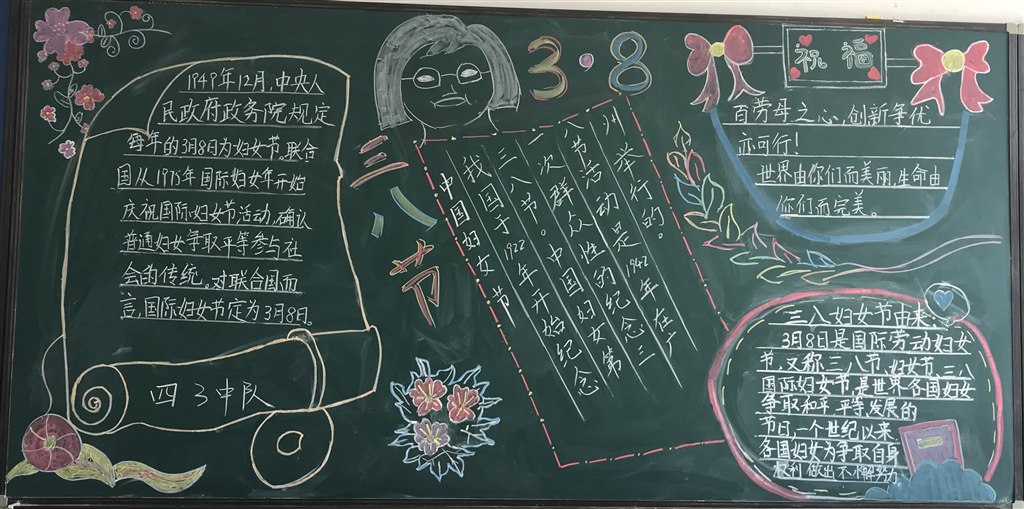 1949年12月,中央人
民政府政务院规定
每年的3月8日为妇女节,联合
国从1975年国际妇女年开始
庆祝国际妇女节活动,确认
普通妇女争取平等参与社
会的传统。对联合国而
言,国际妇女节定为3月8日。
四3中队
3.8
三八节
中国妇女节
我国于1922年开始纪念
三八节。中国妇女第
一次群众性的纪念三
八节活动是1942年在广
州举行的。
祝福
百劳母之心,创新争优
亦可行!
世界由你们而美丽,生命由
你们而完美。
三八妇女节由来:
3月8日是国际劳动妇女
节,又称三八节,妇女节,三八
国际妇女节,是世界各国妇女
争取和平平等发展的
节日,一个世纪以来
各国妇女为争取自身
权利做出不懈努力。